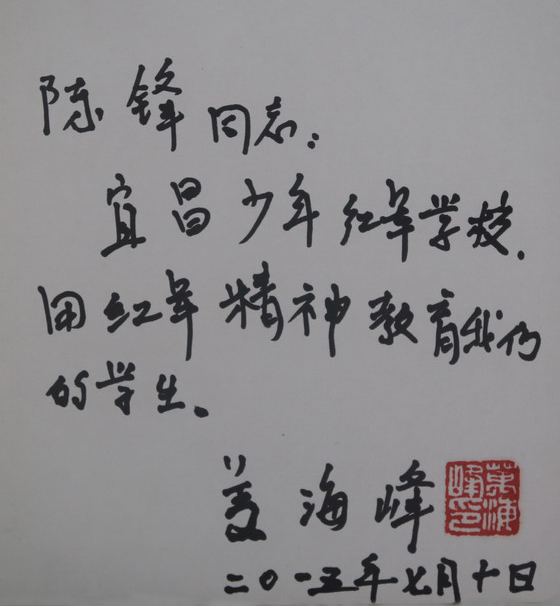 陈锋同志：
宜昌少年红军学校.
用红军精神教育我们
的学生。
萬海峰
萬海峰印
二〇一五年七月十日